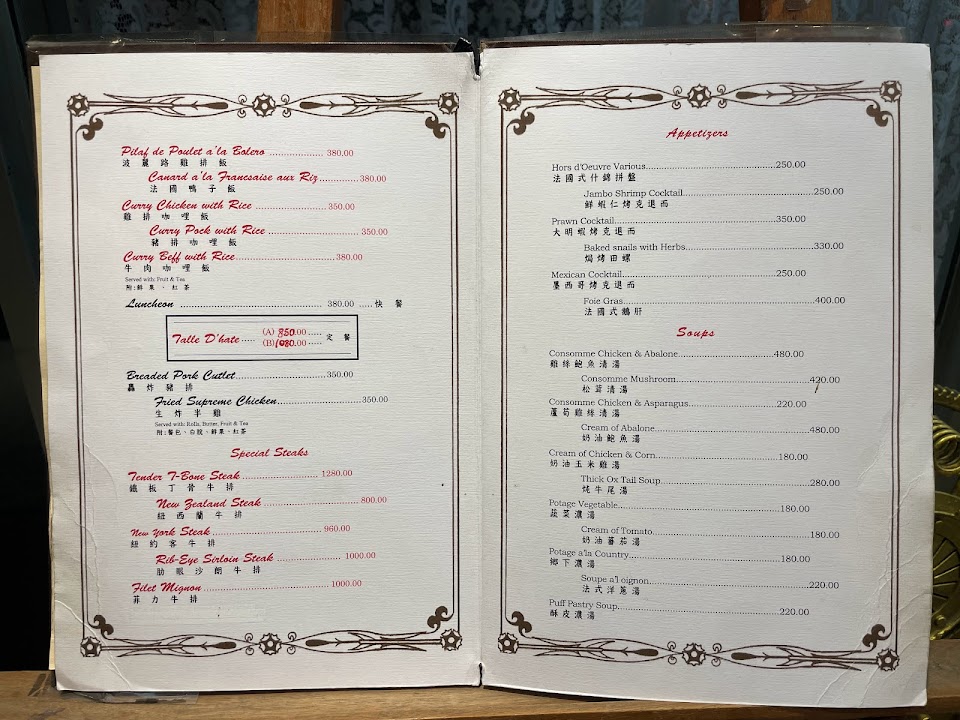 Pilaf de Poulet a'la Bolero .................. 380.00
波麗路雞排飯
Canard a'la Francsaise aux Riz ............. 380.00
法國鴨子飯
Curry Chicken with Rice ........................ 350.00
雞排咖哩飯
Curry Pock with Rice ............................... 350.00
豬排咖哩飯
Curry Beff with Rice ................................ 380.00
牛肉咖哩飯
Served with: Fruit & Tea
附:鮮果、紅茶
Luncheon ................................................ 380.00 ..... 快餐
Talle D'hate ..... (A) 850.00 ..... 定餐
(B) 1080.00 .....
Breaded Pork Cutlet ............................... 350.00
轟炸豬排
Fried Supreme Chicken ............................ 350.00
生炸半雞
Served with: Rolls, Butter, Fruit & Tea
附:餐包、白脫、鮮果、紅茶
Special Steaks
Tender T-Bone Steak ........................ 1280.00
鐵板丁骨牛排
New Zealand Steak ............................. 800.00
紐西蘭牛排
New York Steak .................................. 960.00
紐約客牛排
Rib-Eye Sirloin Steak ...................... 1000.00
肋眼沙朗牛排
Filet Mignon ..................................... 1000.00
菲力牛排
Appetizers
Hors d'Oeuvre Various ........................................ 250.00
法國式什錦拼盤
Jambo Shrimp Cocktail ........................................ 250.00
鮮蝦仁烤克退而
Prawn Cocktail ........................................ 350.00
大明蝦烤克退而
Baked snails with Herbs ........................................ 330.00
焗烤田螺
Mexican Cocktail ........................................ 250.00
墨西哥烤克退而
Foie Gras ........................................ 400.00
法國式鵝肝
Soups
Consomme Chicken & Abalone ............................... 480.00
雞絲鮑魚清湯
Consomme Mushroom ........................................ 420.00
松茸清湯
Consomme Chicken & Asparagus ............................ 220.00
蘆筍雞絲清湯
Cream of Abalone ........................................ 480.00
奶油鮑魚湯
Cream of Chicken & Corn .................................... 180.00
奶油玉米雞湯
Thick Ox Tail Soup ........................................ 280.00
炖牛尾湯
Potage Vegetable ........................................ 180.00
蔬菜濃湯
Cream of Tomato ........................................ 180.00
奶油蕃茄湯
Potage a'la Country ........................................ 180.00
鄉下濃湯
Soupe a'l oignon ........................................ 220.00
法式洋蔥湯
Puff Pastry Soup ........................................ 220.00
酥皮濃湯